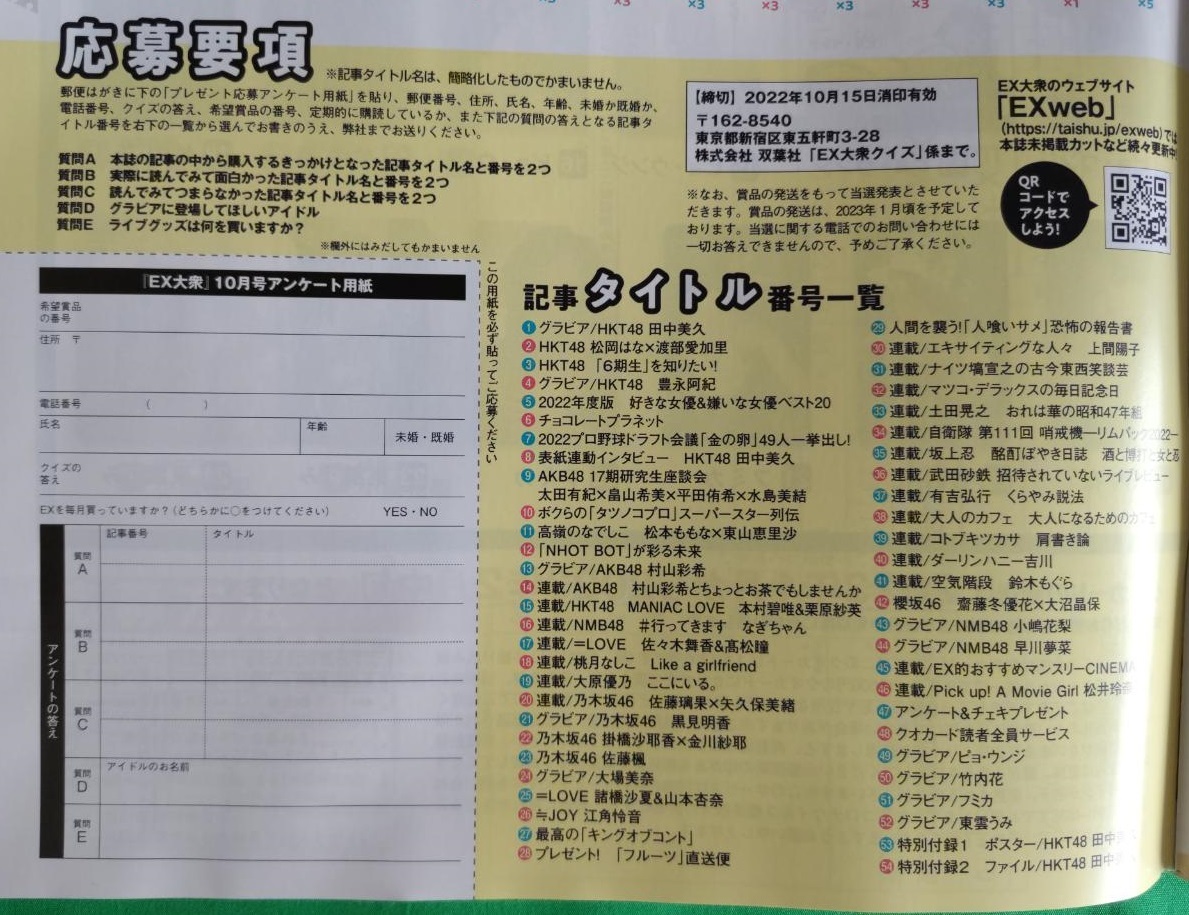 ×3
×3
×3
×3
×3
×3
×3
×1
×5
応募要項
※記事タイトル名は、簡略化したものでかまいません。
郵便はがきに下の「プレゼント応募アンケート用紙」を貼り、郵便番号、住所、氏名、年齢、未婚か既婚か、
電話番号、クイズの答え、希望賞品の番号、定期的に購読しているか、また下記の質問の答えとなる記事タ
イトル番号を右下の一覧から選んでお書きのうえ、弊社までお送りください。
質問A 本誌の記事の中から購入するきっかけとなった記事タイトル名と番号を2つ
質問B 実際に読んでみて面白かった記事タイトル名と番号を2つ
質問C 読んでみてつまらなかった記事タイトル名と番号を2つ
質問D グラビアに登場してほしいアイドル
質問E ライブグッズは何を買いますか?
※欄外にはみだしてもかまいません
【締切】2022年10月15日消印有効
〒162-8540
東京都新宿区東五軒町3-28
株式会社 双葉社「EX大衆クイズ」係まで。
※なお、賞品の発送をもって当選発表とさせていた
だきます。賞品の発送は、2023年1月頃を予定して
おります。当選に関する電話でのお問い合わせには
一切お答えできませんので、予めご了承ください。
EX大衆のウェブサイト
「EXweb」
(https://taishu.jp/exweb)では
本誌未掲載カットなど続々更新中
QR
コードで
アクセス
しよう!
『EX大衆』10月号アンケート用紙
希望賞品
の番号
住所 〒
電話番号 ( )
氏名
年齢
未婚・既婚
クイズの
答え
EXを毎月買っていますか?(どちらかに○をつけてください) YES・NO
アンケートの答え
記事番号
タイトル
質問
A
質問
B
質問
C
質問
D
アイドルのお名前
質問
E
この用紙を必ず貼ってご応募ください
記事タイトル番号一覧
1 グラビア/HKT48 田中美久
2 HKT48 松岡はな×渡部愛加里
3 HKT48 「6期生」を知りたい!
4 グラビア/HKT48 豊永阿紀
5 2022年度版 好きな女優&嫌いな女優ベスト20
6 チョコレートプラネット
7 2022プロ野球ドラフト会議「金の卵」49人一挙出し!
8 表紙連動インタビュー HKT48 田中美久
9 AKB48 17期研究生座談会
太田有紀×畠山希美×平田侑希×水島美結
10 ボクらの「タツノコプロ」スーパースター列伝
11 高嶺のなでしこ 松本ももな×東山恵里沙
12 「NHOT BOT」が彩る未来
13 グラビア/AKB48 村山彩希
14 連載/AKB48 村山彩希とちょっとお茶でもしませんか
15 連載/HKT48 MANIAC LOVE 本村碧唯&栗原紗英
16 連載/NMB48 #行ってきます なぎちゃん
17 連載/=LOVE 佐々木舞香&髙松瞳
18 連載/桃月なしこ Like a girlfriend
19 連載/大原優乃 ここにいる。
20 連載/乃木坂46 佐藤璃果×矢久保美緒
21 グラビア/乃木坂46 黒見明香
22 乃木坂46 掛橋沙耶香×金川紗耶
23 乃木坂46 佐藤楓
24 グラビア/大場美奈
25 =LOVE 諸橋沙夏&山本杏奈
26 ≒JOY 江角怜音
27 最高の「キングオブコント」
28 プレゼント! 「フルーツ」直送便
29 人間を襲う!「人喰いサメ」恐怖の報告書
30 連載/エキサイティングな人々 上間陽子
31 連載/ナイツ塙宣之の古今東西笑談芸
32 連載/マツコ・デラックスの毎日記念日
33 連載/土田晃之 おれは華の昭和47年組
34 連載/自衛隊 第111回 哨戒機―リムパック2022―
35 連載/坂上忍 酩酊ぼやき日誌 酒と博打と女と忍
36 連載/武田砂鉄 招待されていないライブレビュー
37 連載/有吉弘行 くらやみ説法
38 連載/大人のカフェ 大人になるためのカフェ
39 連載/コトブキツカサ 肩書き論
40 連載/ダーリンハニー吉川
41 連載/空気階段 鈴木もぐら
42 櫻坂46 齋藤冬優花×大沼晶保
43 グラビア/NMB48 小嶋花梨
44 グラビア/NMB48 早川夢菜
45 連載/EX的おすすめマンスリーCINEMA
46 連載/Pick up! A Movie Girl 松井玲奈
47 アンケート&チェキプレゼント
48 クオカード読者全員サービス
49 グラビア/ピョ・ウンジ
50 グラビア/竹内花
51 グラビア/フミカ
52 グラビア/東雲うみ
53 特別付録1 ポスター/HKT48 田中美
54 特別付録2 ファイル/HKT48 田中